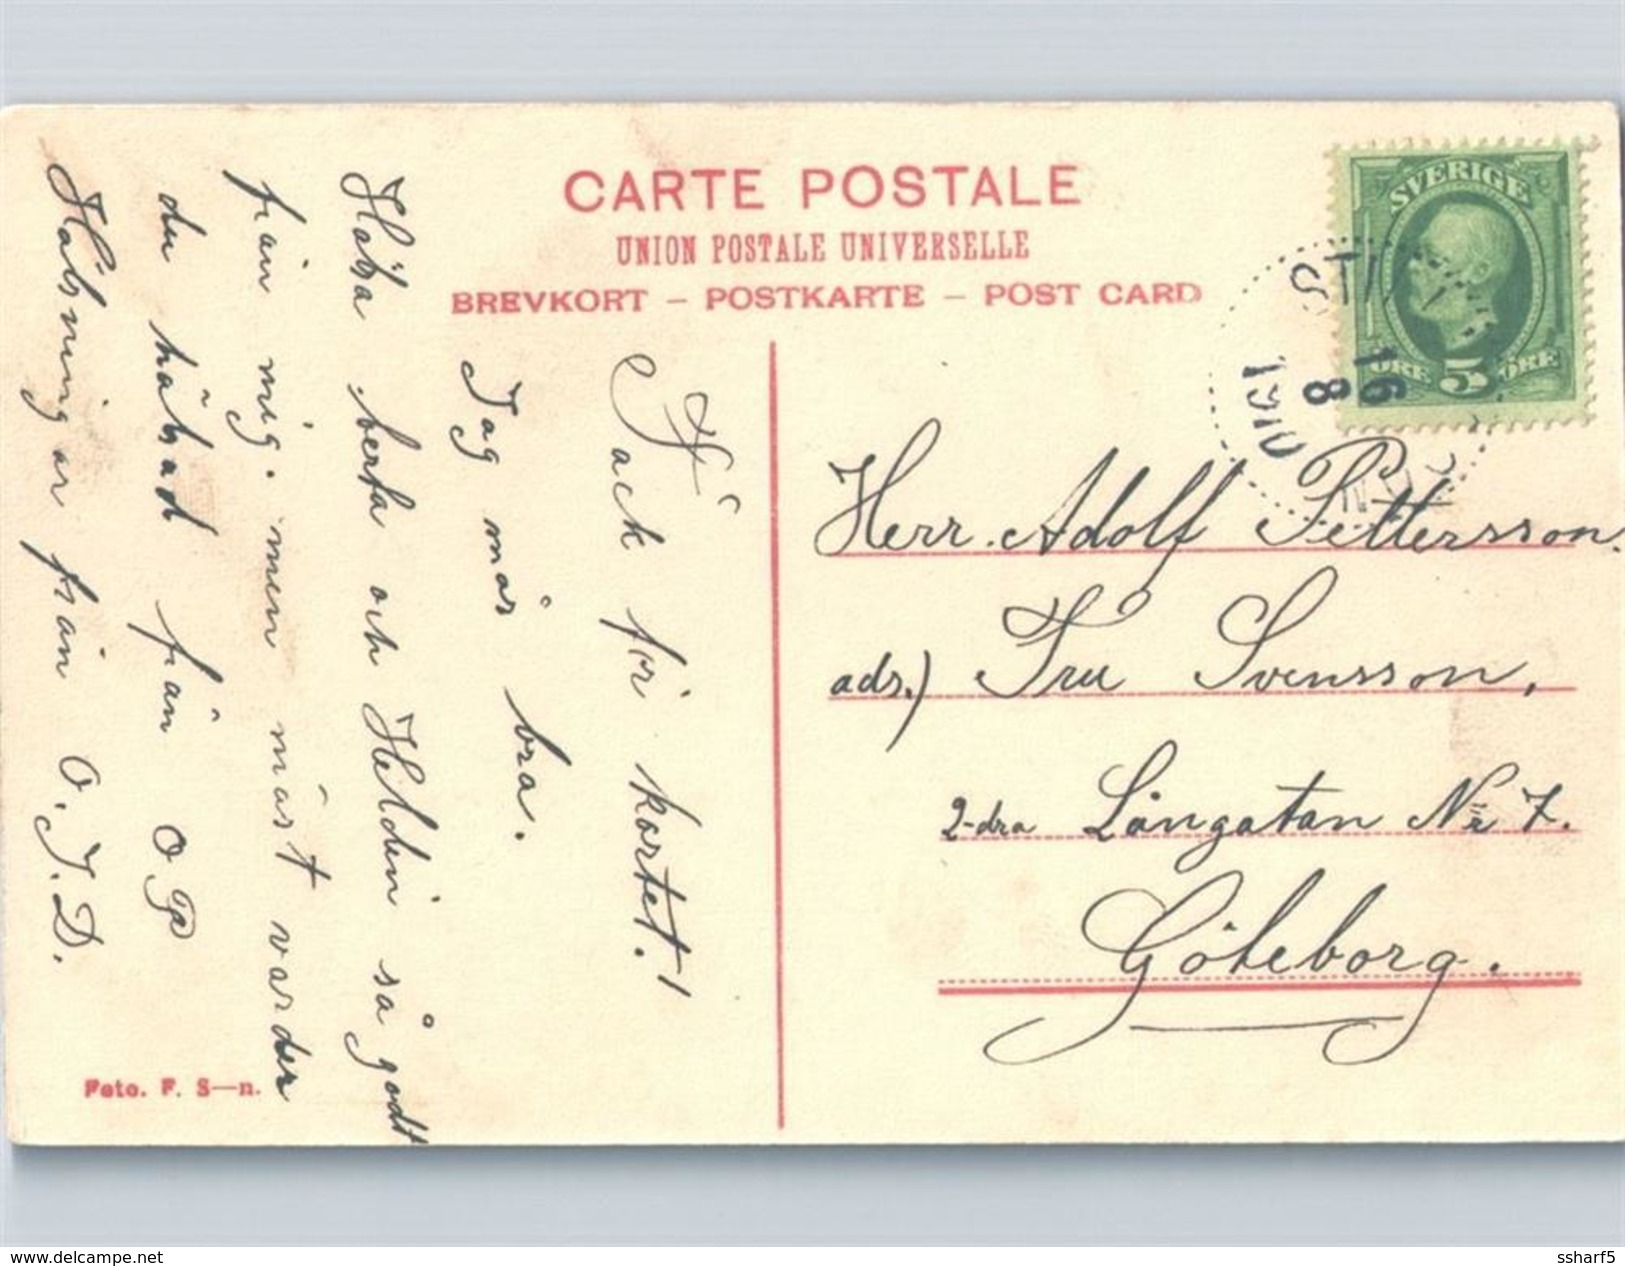 CARTE POSTALE
UNION POSTALE UNIVERSELLE
BREVKORT – POSTKARTE – POST CARD
SVERIGE
ÖRE 5 ÖRE
16
8
1910
Tack för kortet!
Jag mår bra.
Hälsa berta och Helden så godt
från mig. men närst varder
du hälsad från O P
Hälsningar från O. J. D.
Herr. Adolf Pettersson.
adr.) Fru Svensson,
2-dra Långatan No 7.
Göteborg.
Foto. F. S—n.
www.delcampe.net
ssharf5